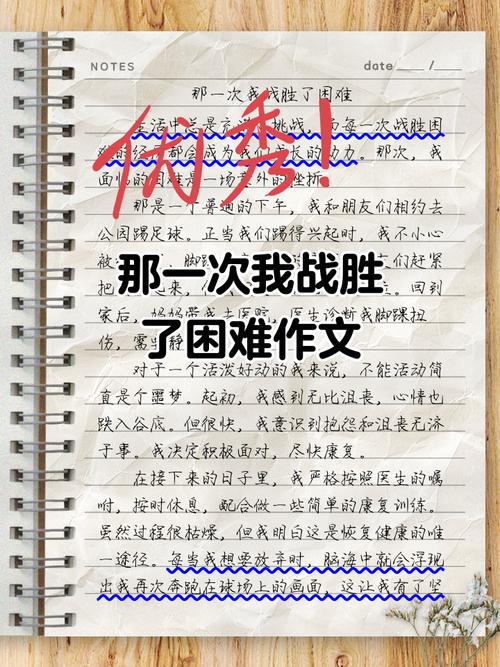 NOTES
date /
那一次我战胜了困难
优秀!
生活中总是充满挑战,而每一次战胜困
难的经历都会成为我成长的动力。那次,我
面临的困难是一场意外的挫折。
那是一个普通的下午,我和朋友们相约去
公园踢足球。正当我们踢得兴起时,我不小心
被 脚踝 们赶紧
把 起来, 回到
那一次我战胜
家后,妈妈带我去医院,医生诊断我脚踝扭
了困难作文
伤,需 静
对于一个活泼好动的我来说,不能活动简
直是个噩梦。起初,我感到无比沮丧,心情也
跌入谷底。但很快,我意识到抱怨和沮丧无济
于事。我决定积极面对,尽快康复。
在接下来的日子里,我严格按照医生的嘱
咐,按时休息,配合做一些简单的康复训练。
虽然过程很枯燥,但我明白这是恢复健康的唯
一途径。每当我想要放弃时,脑海中就会浮现
出我再次奔跑在球场上的画面,这让我有了坚